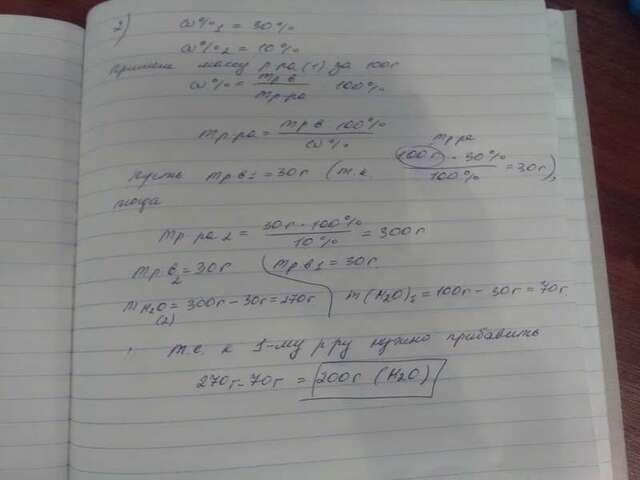 2)
ω%₁ = 30%
ω%₂ = 10%
примем массу р-ра (1) за 100г
ω% = mр.в / mр-ра · 100%
mр-ра = mр.в · 100% / ω%
mр-ра
пусть mр.в₁ = 30г (т.к. 100г · 30% / 100% = 30г),
тогда
mр-ра 2 = 30г · 100% / 10% = 300г
mр.в₂ = 30г mр.в₁ = 30г.
m H₂O (2) = 300г - 30г = 270г m (H₂O)₁ = 100г - 30г = 70г.
т.е. к 1-му р-ру нужно прибавить
270г - 70г = 200г (H₂O)